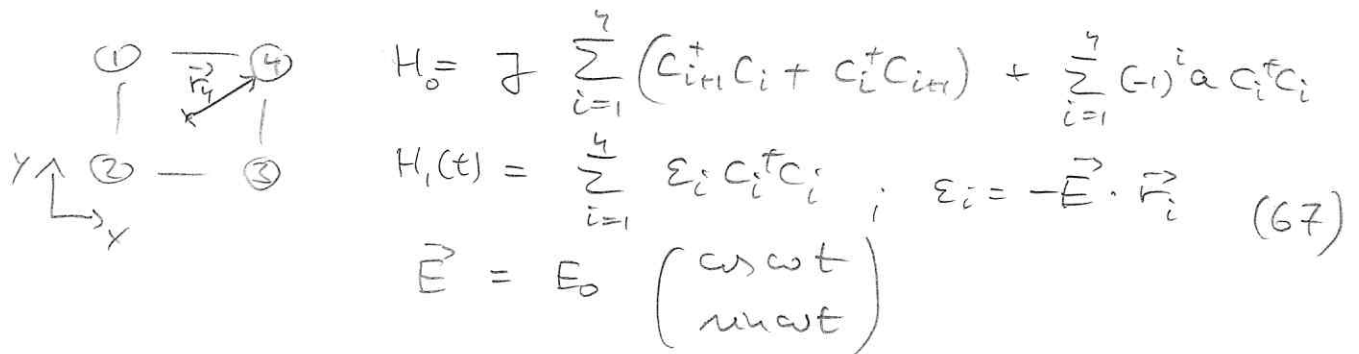 ① — ④ H₀ = J \sum_{i=1}^{4} (C_{i+1}^+ C_i + C_i^+ C_{i+1}) + \sum_{i=1}^{4} (-1)^i a C_i^+ C_i
\vec{r}_4
Y ② — ③ H_1(t) = \sum_{i=1}^{4} ε_i C_i^+ C_i ; ε_i = -\vec{E} · \vec{r}_i (67)
Y
\vec{E} = E_0 \begin{pmatrix} cos ωt \\ sin ωt \end{pmatrix}